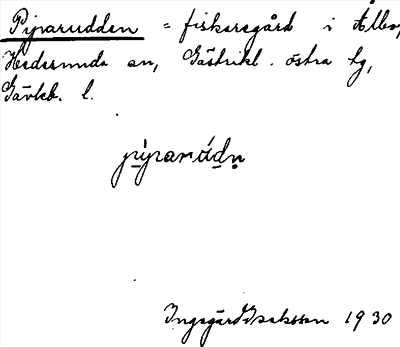 Piparudden = fiskaregård i Ålbo,
Hedesunda sn, Gästrikl. östra tg,
Gävleb. l.
pìparúdn
Ingegärd Isaksson 1930